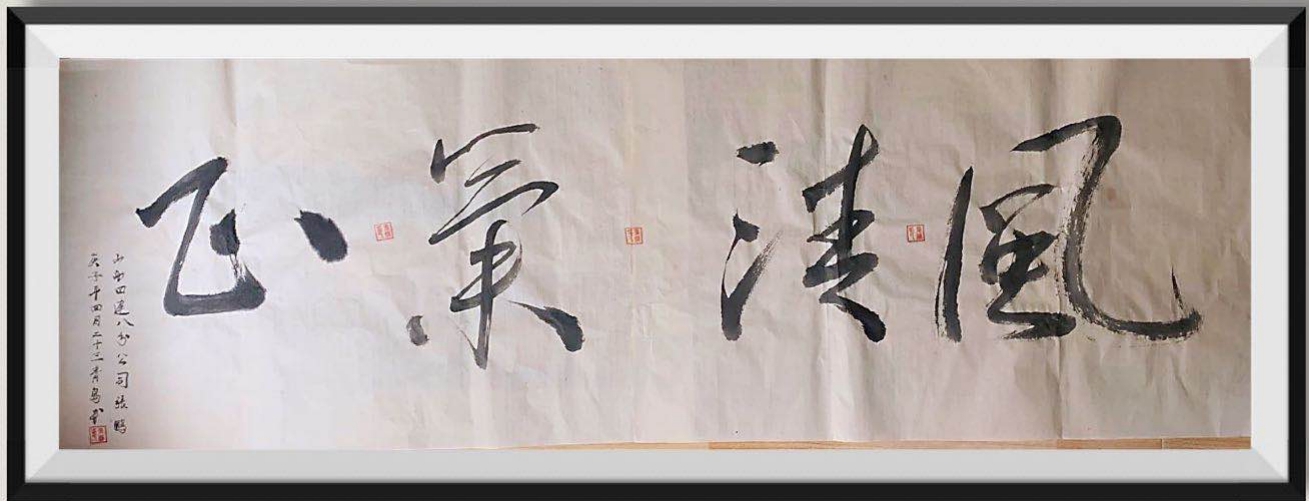 風清氣正
山西四建八分公司張鵬
庚子年四月二十三青鳥書